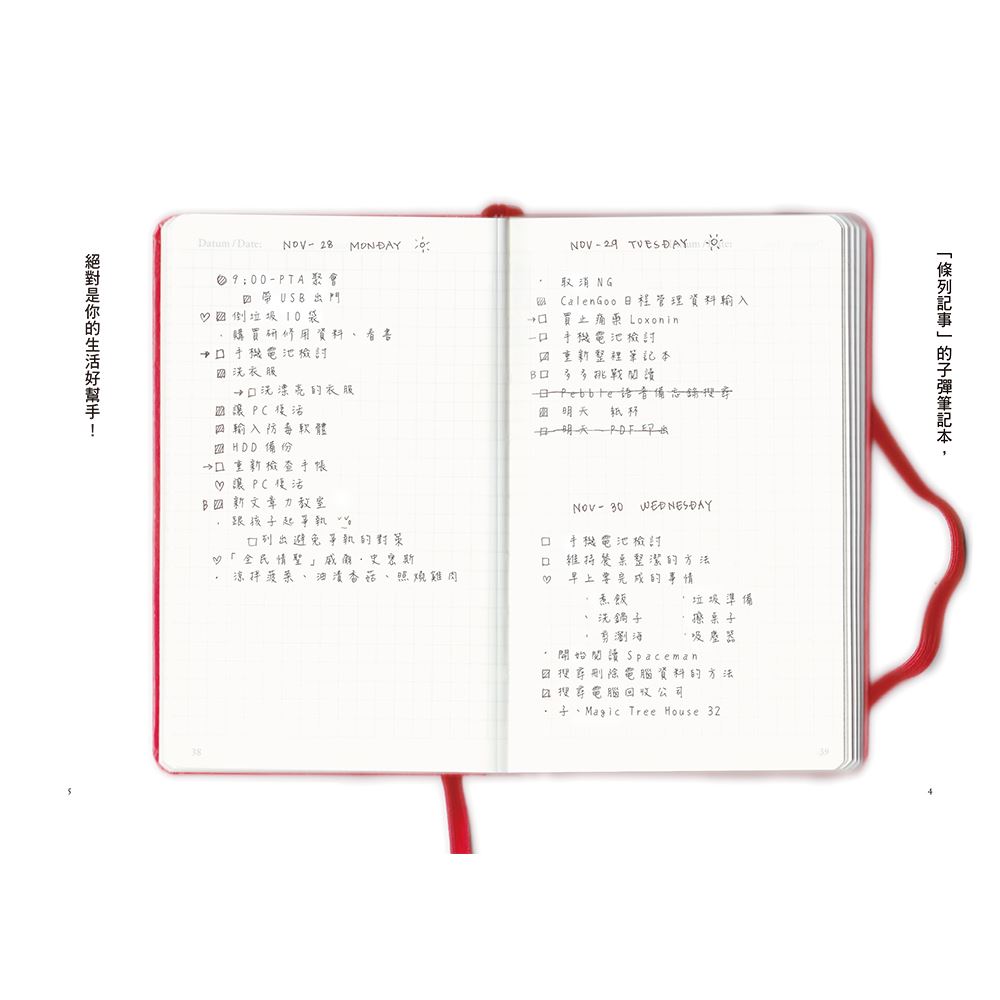 「條列記事」的子彈筆記本，
絕對是你的生活好幫手！
Datum / Date:
NOV-28 MONDAY
9:00-PTA聚會
帶USB出門
♡ 倒垃圾10袋
· 購買研修用資料、看書
→□ 手機電池檢討
洗衣服
→□洗漂亮的衣服
讓PC復活
輸入防毒軟體
HDD備份
→□ 重新檢查手帳
♡ 讓PC復活
B 新文章力教室
· 跟孩子起爭執
□列出避免爭執的對策
♡「全民情聖」威廟·史密斯
· 涼拌菠菜、油漬香菇、照燒雞肉
38
NOV-29 TUESDAY
· 取消NG
CalenGoo日程管理資料輸入
→□ 買止痛藥Loxonin
—□ 手機電池檢討
重新整裡筆記本
B□ 多多挑戰閱讀
□ Pebble語音備忘錄搜尋
明天 紙杯
□ 明天—PDF印出
NOV-30 WEDNESDAY
□ 手機電池檢討
□ 維持餐桌整潔的方法
♡ 早上要完成的事情
· 煮飯 · 垃圾準備
· 洗鍋子 · 擦桌子
· 剪瀏海 · 吸塵器
· 開始閱讀Spaceman
搜尋刪除電腦資料的方法
搜尋電腦回收公司
· 子、Magic Tree House 32
39
5
4